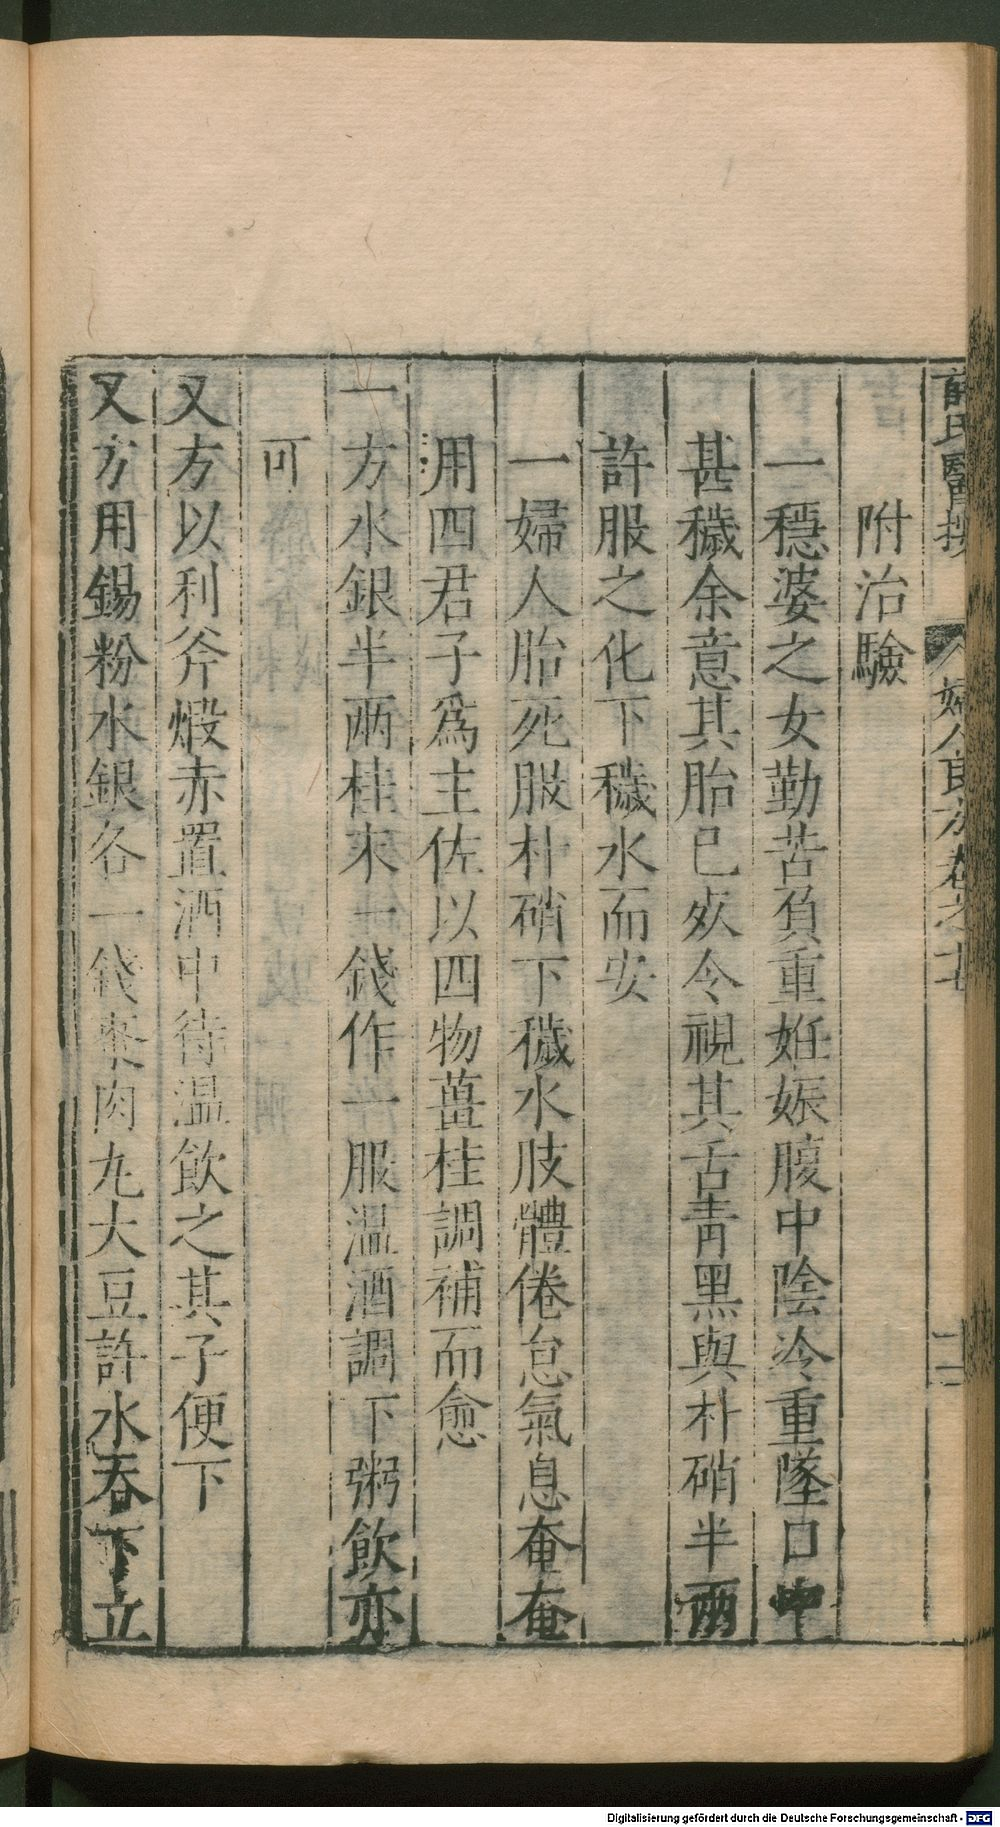 薛氏醫按 婦人良方卷之廿 十二
附治驗
一穩婆之女勤苦負重妊娠腹中陰冷重墜口中
甚穢余意其胎已㱙令視其舌青黑與朴硝半兩
許服之化下穢水而安
一婦人胎死服朴硝下穢水肢體倦怠氣息奄奄
用四君子爲主佐以四物薑桂調補而愈
一方水銀半兩桂末一錢作一服温酒調下粥飲亦
可
又方以利斧煅赤置酒中待温飲之其子便下
又方用錫粉水銀各一錢棗肉丸大豆許水吞下立
Digitalisierung gefördert durch die Deutsche Forschungsgemeinschaft - DFG